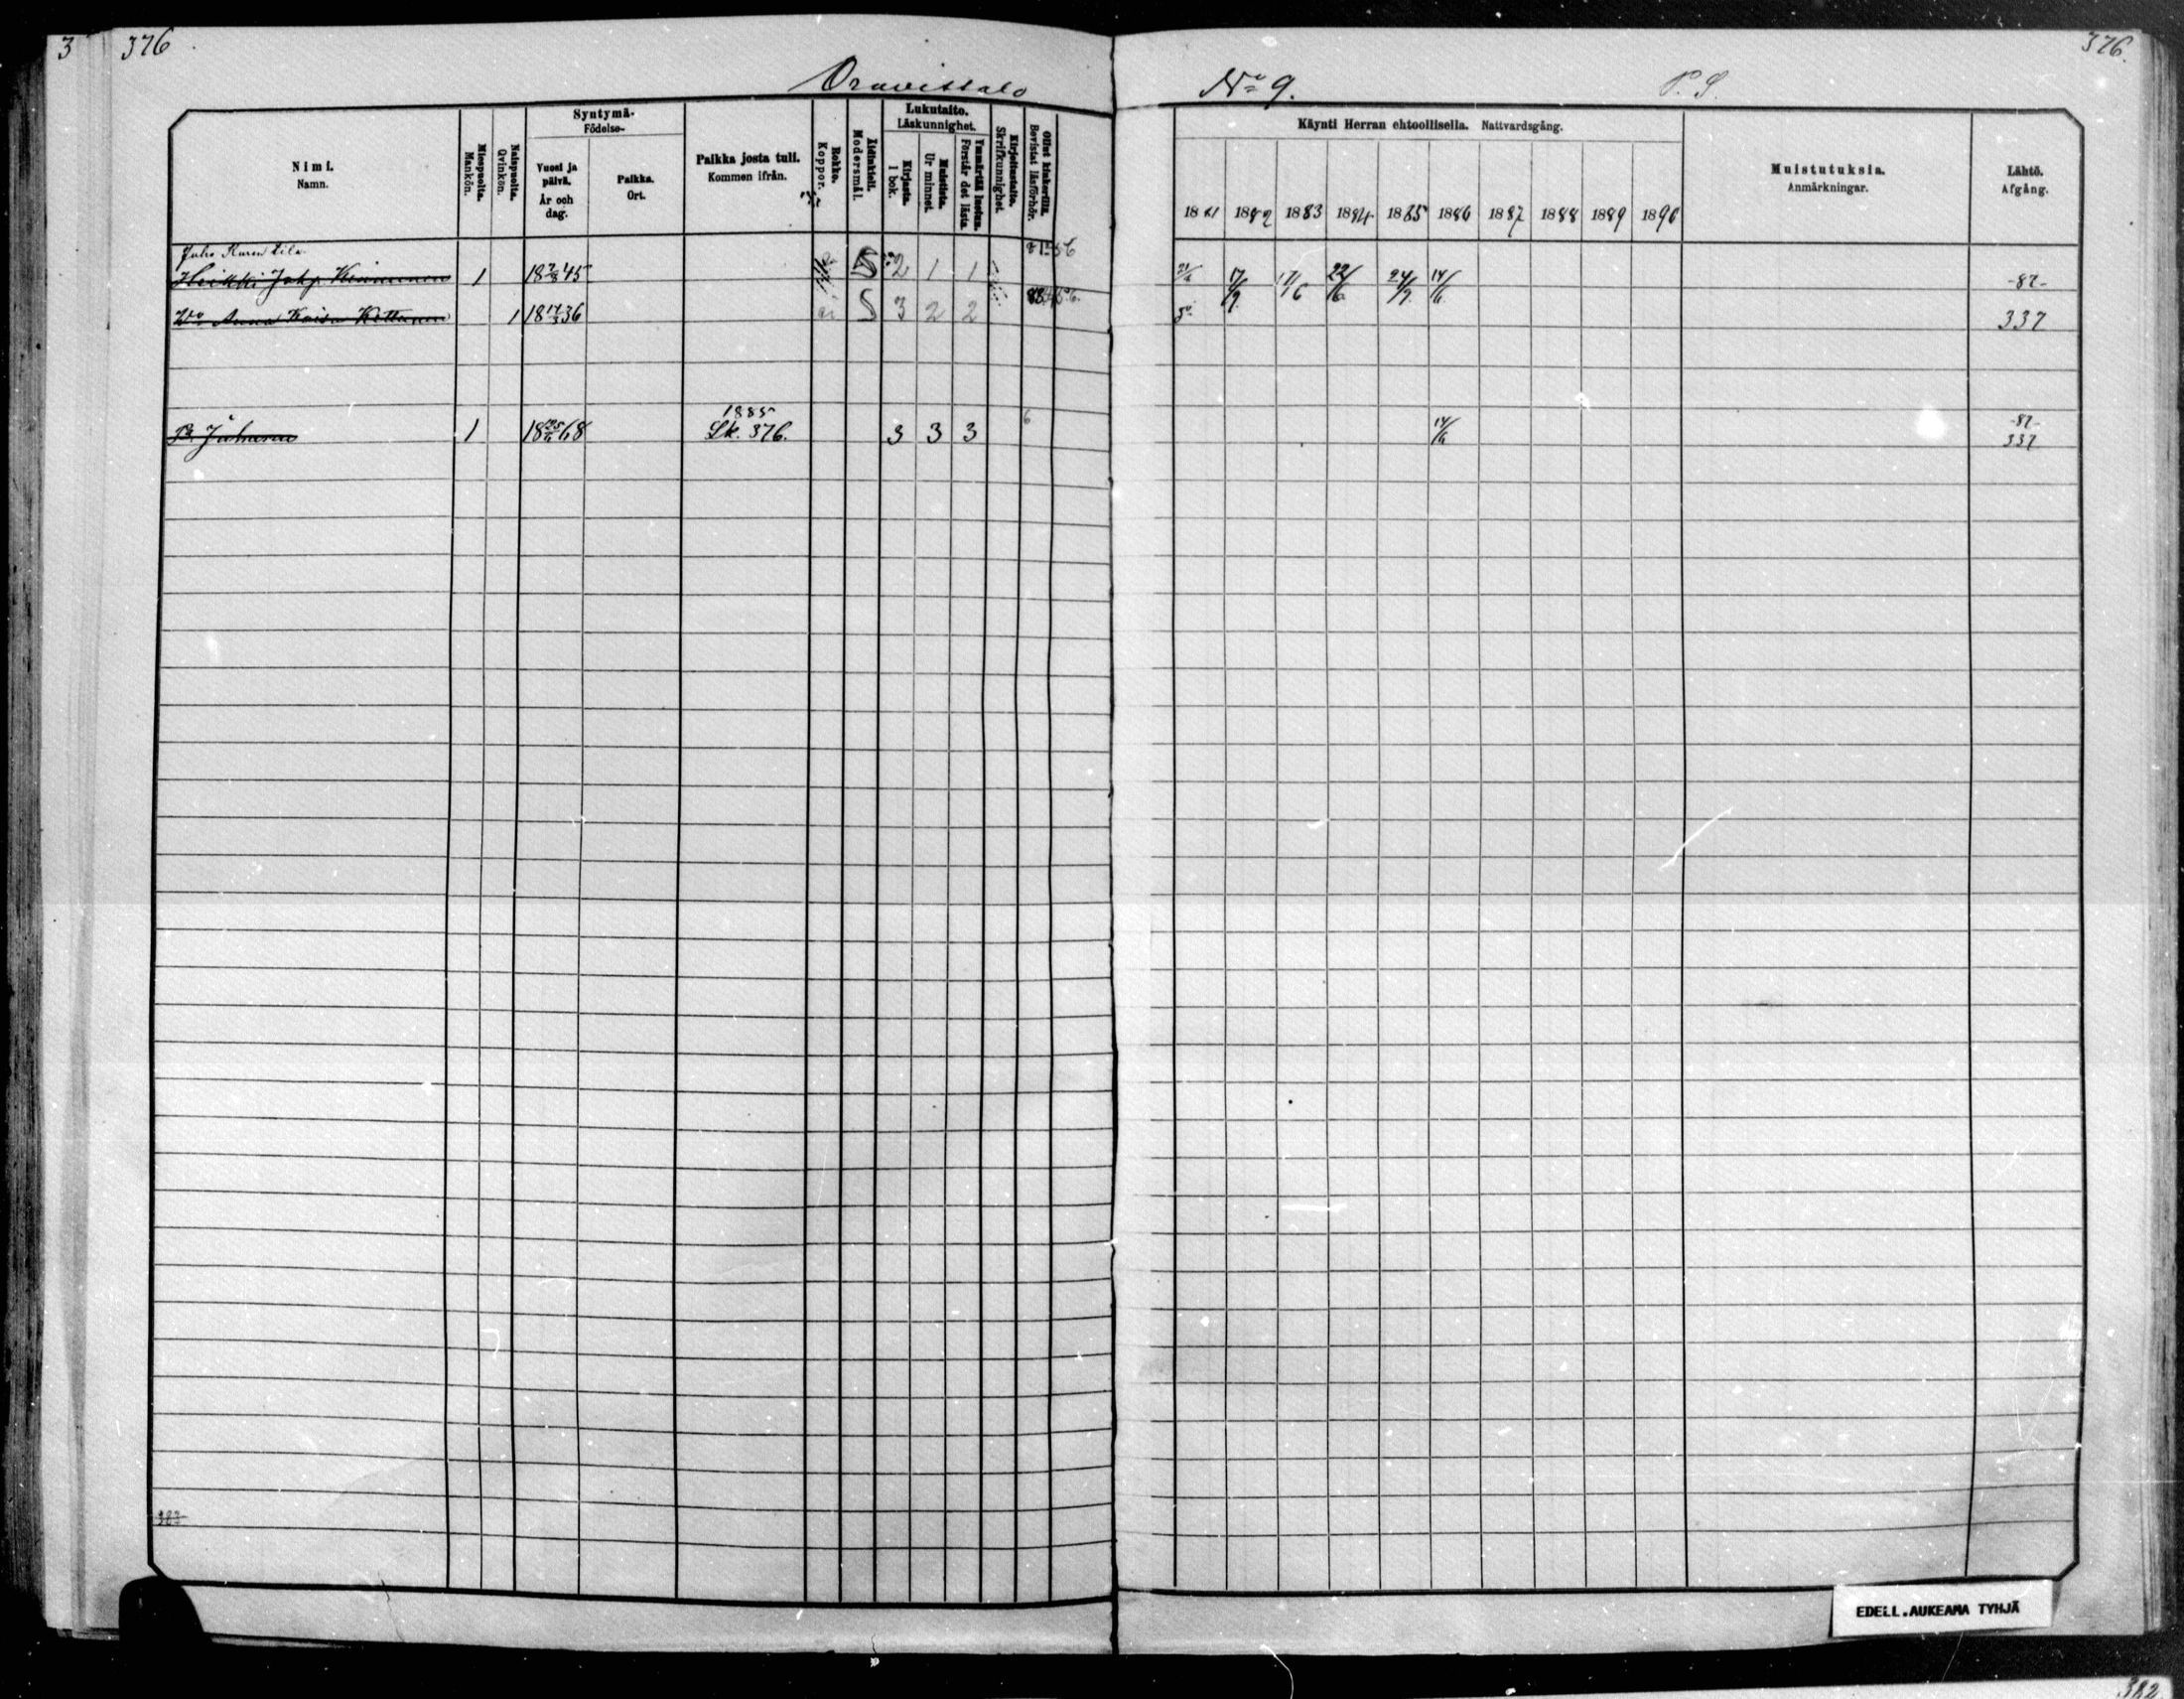 3 376 376.
Oravissalo No 9. P. S.
Nimi.
Namn.
Miespuolta.
Mankön.
Naispuolta.
Qvinkön.
Syntymä-
Födelse-
Vuosi ja
päivä.
År och
dag.
Paikka.
Ort.
Paikka josta tuli.
Kommen ifrån.
Rokko.
Koppor.
Äidinkieli.
Modersmål.
Lukutaito.
Läskunnighet.
Kirjasta.
I bok.
Muistista.
Ur minnet.
Ymmärtää luetun.
Förstår det lästa.
Kirjoitustaito.
Skrifkunnighet.
Ollut kinkerillä.
Bevistat läsförhör.
Käynti Herran ehtoollisella. Nattvardsgång.
1881 1882 1883 1884 1885 1886 1887 1888 1889 1890
Muistutuksia.
Anmärkningar.
Lähtö.
Afgång.
Juho tila
Heikki Juhp. Keinänen 1 45 S 2 1 1 21/6 17/9 17/6 22/6 24/9 14/6 -87-
Wo Anna Kaisa 1 18 17/3 36 S 3 2 2 337
1885
P. Juhana 1 18 25/11 68 Sk. 376. 3 3 3 6 14/6 -87-
337
383
EDELL.AUKEAMA TYHJÄ
382